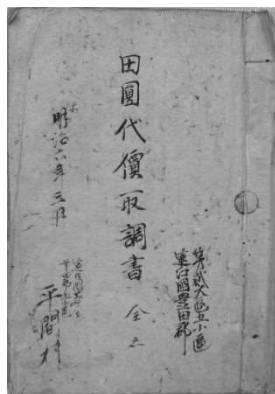 第貳大區五小區
遠江國豊田郡
田圓代價取調書 全
明治六年三月
平間村